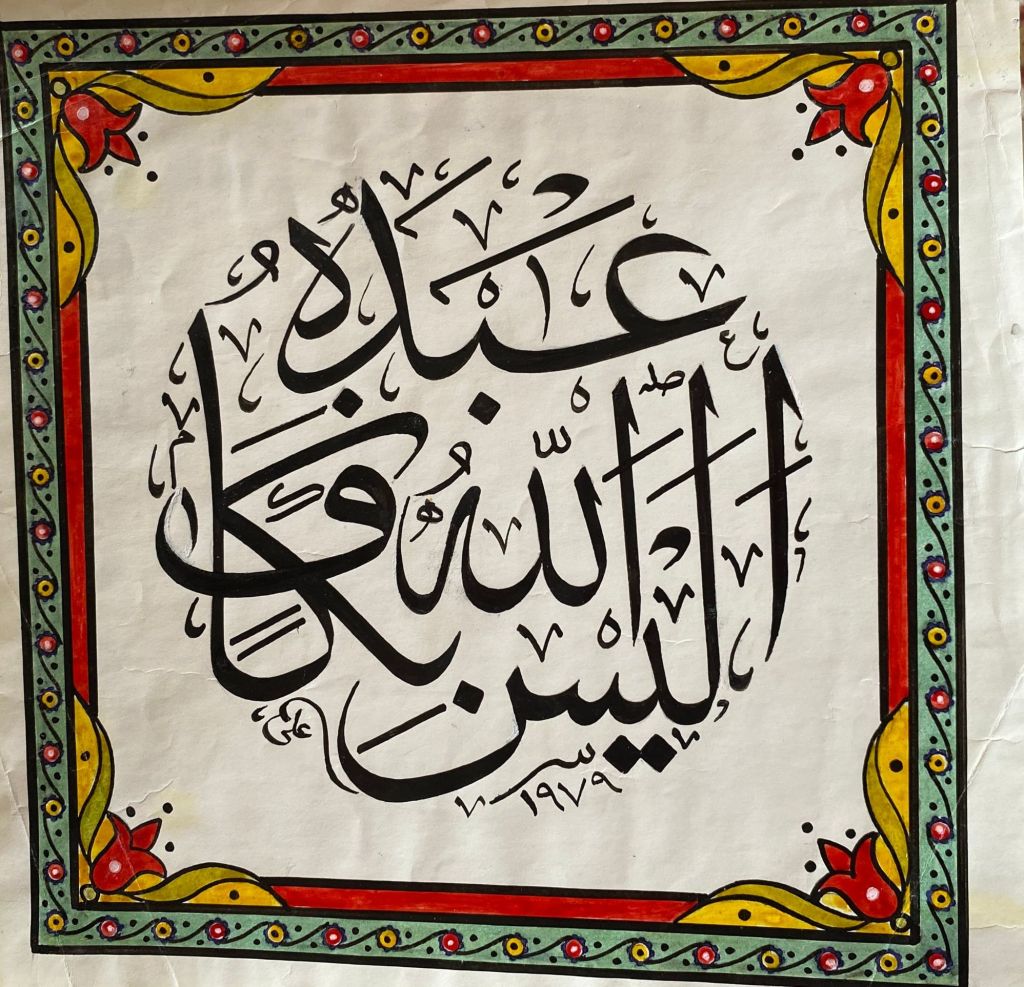 أَلَيْسَ اللّٰهُ بِكَافٍ عَبْدَهُ
علي
١٩٧٩